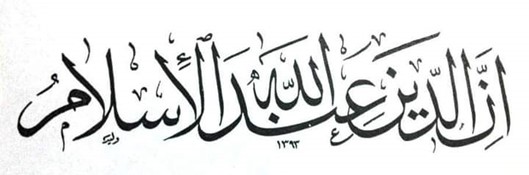 إنَّ الدِّينَ عِندَ اللَّهِ الْإِسْلَامُ
١٣٩٣